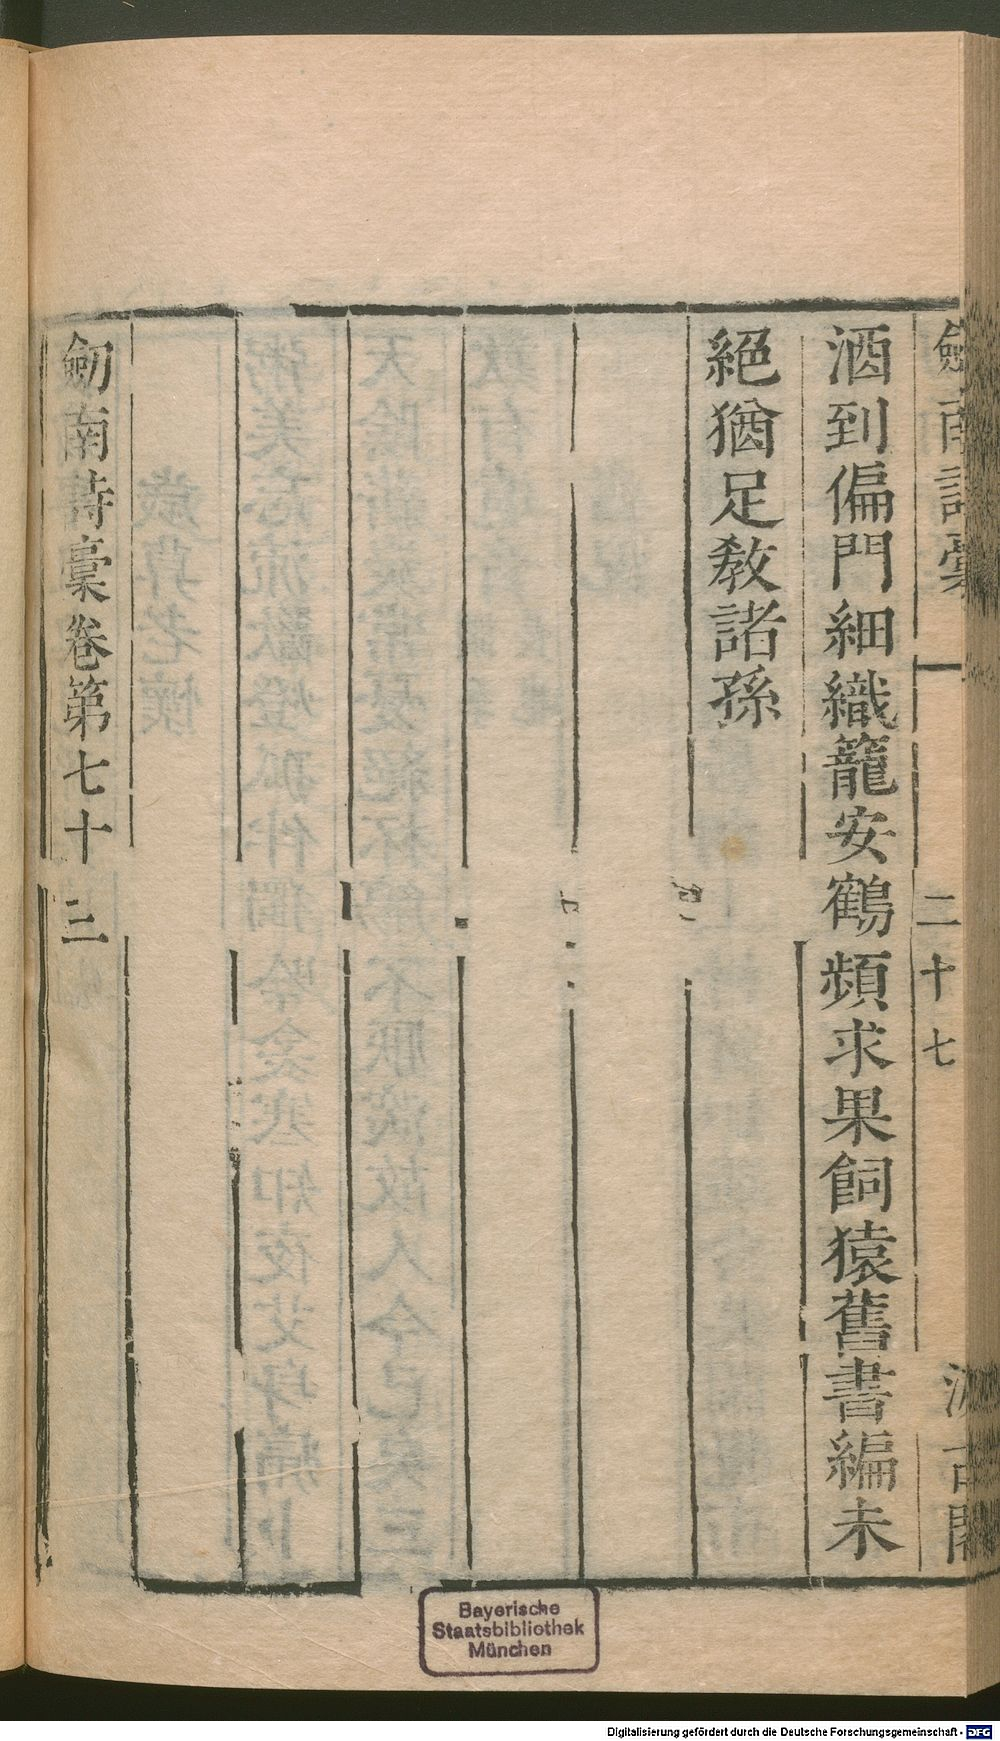 劒南詩稾
二十七
汲古閣
酒到偏門細織籠安鶴頻求果飼猿舊書編未
絕猶足敎諸孫
劒南詩稾卷第七十三
Bayerische
Staatsbibliothek
München
Digitalisierung gefördert durch die Deutsche Forschungsgemeinschaft - DFG